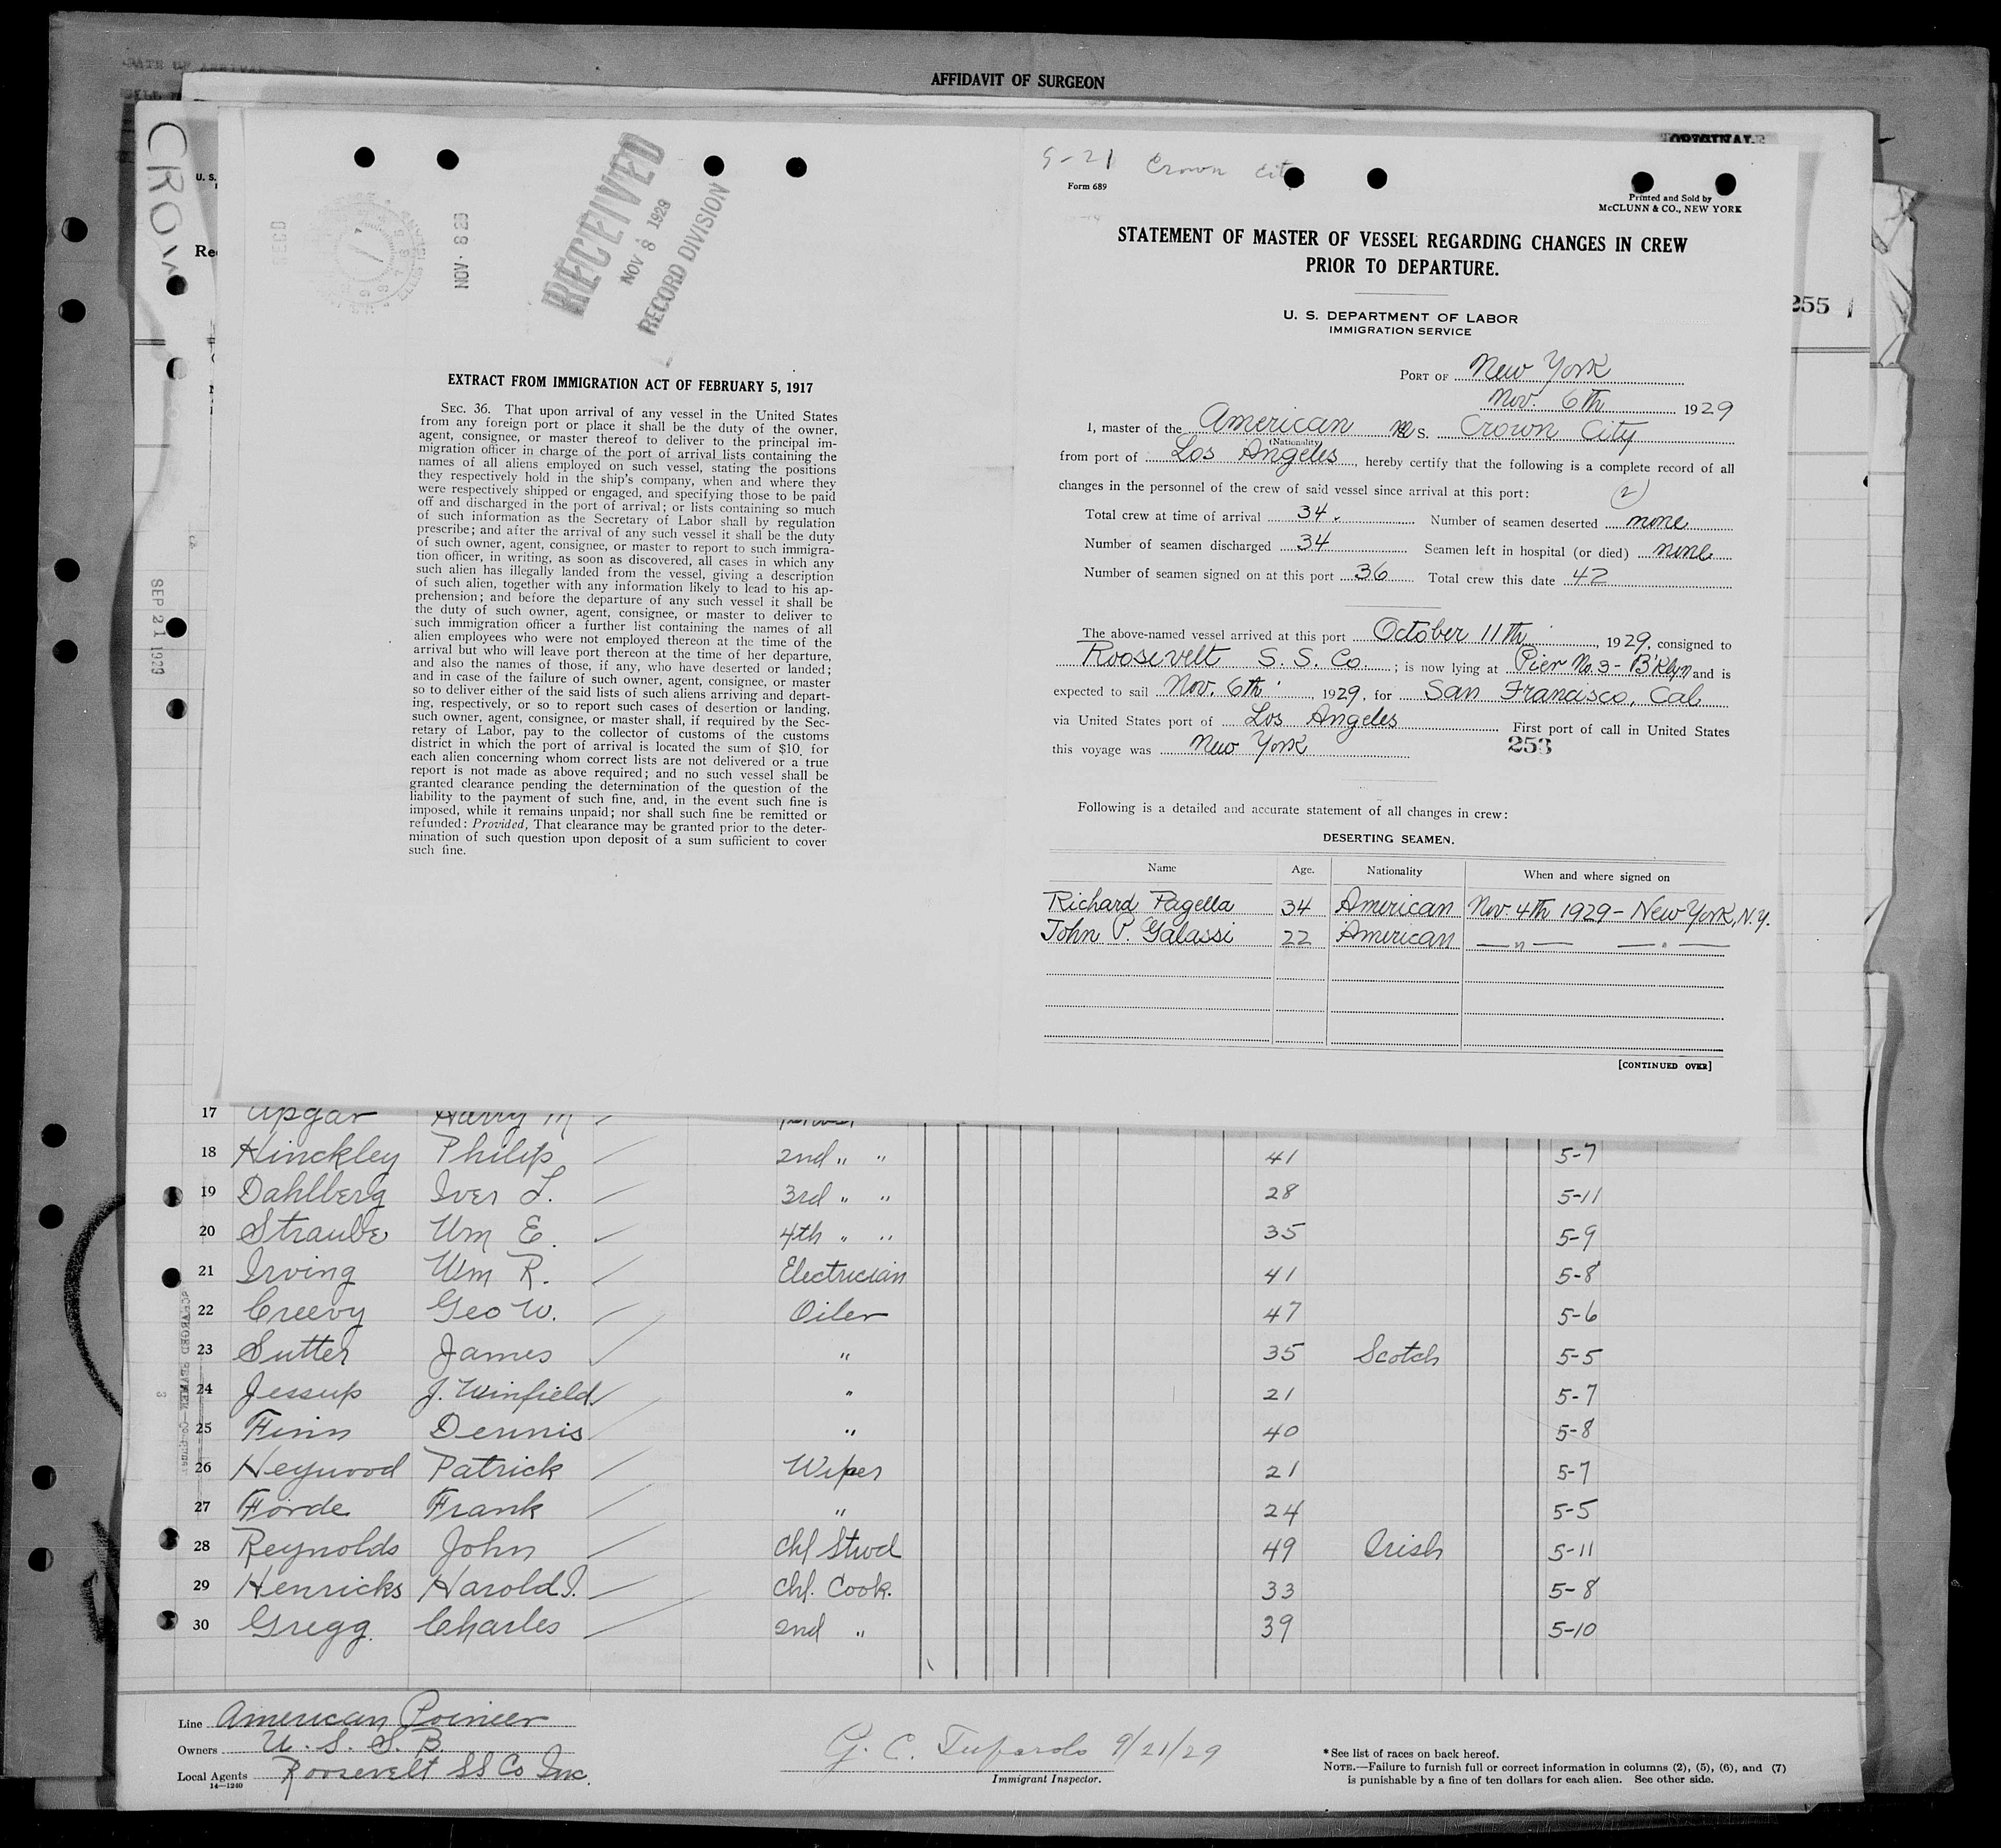 AFFIDAVIT OF SURGEON
ORIGINAL
CROW
U. S.
Re
255
SEP 21 1929
REC'D
NOV. 8 29
RECEIVED
NOV 8 1929
RECORD DIVISION
EXTRACT FROM IMMIGRATION ACT OF FEBRUARY 5, 1917
SEC. 36. That upon arrival of any vessel in the United States
from any foreign port or place it shall be the duty of the owner,
agent, consignee, or master thereof to deliver to the principal im-
migration officer in charge of the port of arrival lists containing the
names of all aliens employed on such vessel, stating the positions
they respectively hold in the ship's company, when and where they
were respectively shipped or engaged, and specifying those to be paid
off and discharged in the port of arrival; or lists containing so much
of such information as the Secretary of Labor shall by regulation
prescribe; and after the arrival of any such vessel it shall be the duty
of such owner, agent, consignee, or master to report to such immigra-
tion officer, in writing, as soon as discovered, all cases in which any
such alien has illegally landed from the vessel, giving a description
of such alien, together with any information likely to lead to his ap-
prehension; and before the departure of any such vessel it shall be
the duty of such owner, agent, consignee, or master to deliver to
such immigration officer a further list containing the names of all
alien employees who were not employed thereon at the time of the
arrival but who will leave port thereon at the time of her departure,
and also the names of those, if any, who have deserted or landed;
and in case of the failure of such owner, agent, consignee, or master
so to deliver either of the said lists of such aliens arriving and depart-
ing, respectively, or so to report such cases of desertion or landing,
such owner, agent, consignee, or master shall, if required by the Sec-
retary of Labor, pay to the collector of customs of the customs
district in which the port of arrival is located the sum of $10 for
each alien concerning whom correct lists are not delivered or a true
report is not made as above required; and no such vessel shall be
granted clearance pending the determination of the question of the
liability to the payment of such fine, and, in the event such fine is
imposed, while it remains unpaid; nor shall such fine be remitted or
refunded: Provided, That clearance may be granted prior to the deter-
mination of such question upon deposit of a sum sufficient to cover
such fine.
5-21 Crown City
Form 689
Printed and Sold by
McCLUNN & CO., NEW YORK
STATEMENT OF MASTER OF VESSEL REGARDING CHANGES IN CREW
PRIOR TO DEPARTURE.
U. S. DEPARTMENT OF LABOR
IMMIGRATION SERVICE
PORT OF New York
Nov. 6th 1929
I, master of the American M S. Crown City
(Nationality)
from port of Los Angeles, hereby certify that the following is a complete record of all
changes in the personnel of the crew of said vessel since arrival at this port: (2)
Total crew at time of arrival 34. Number of seamen deserted none
Number of seamen discharged 34 Seamen left in hospital (or died) none
Number of seamen signed on at this port 36 Total crew this date 42
The above-named vessel arrived at this port October 11th, 1929, consigned to
Roosevelt S. S. Co.; is now lying at Pier No. 3 - B'klyn and is
expected to sail Nov. 6th, 1929, for San Francisco, Cal
via United States port of Los Angeles First port of call in United States
this voyage was New York 253
Following is a detailed and accurate statement of all changes in crew:
DESERTING SEAMEN.
Name Age. Nationality When and where signed on
Richard Pagella 34 American Nov. 4th 1929 - New York, N.Y.
John P. Galassi 22 American — " — — " —
[CONTINUED OVER]
17 Apgar Harry M
18 Hinckley Philip 2nd " " 41 5-7
19 Dahlberg Iver L. 3rd " " 28 5-11
20 Straube Wm E. 4th " " 35 5-9
21 Irving Wm R. Electrician 41 5-8
22 Creevy Geo W. Oiler 47 5-6
23 Sutter James " 35 Scotch 5-5
24 Jessup J. Winfield " 21 5-7
25 Finn Dennis " 40 5-8
26 Heywood Patrick Wiper 21 5-7
27 Forde Frank " 24 5-5
28 Reynolds John Chf Stwd 49 Irish 5-11
29 Henricks Harold J. Chf. Cook. 33 5-8
30 Gregg Charles 2nd " 39 5-10
Line American Poineer
Owners U. S. S. B.
Local Agents Roosevelt SS Co Inc.
14-1240
G. C. Tufarolo 9/21/29
Immigrant Inspector.
* See list of races on back hereof.
NOTE.—Failure to furnish full or correct information in columns (2), (5), (6), and (7)
is punishable by a fine of ten dollars for each alien. See other side.